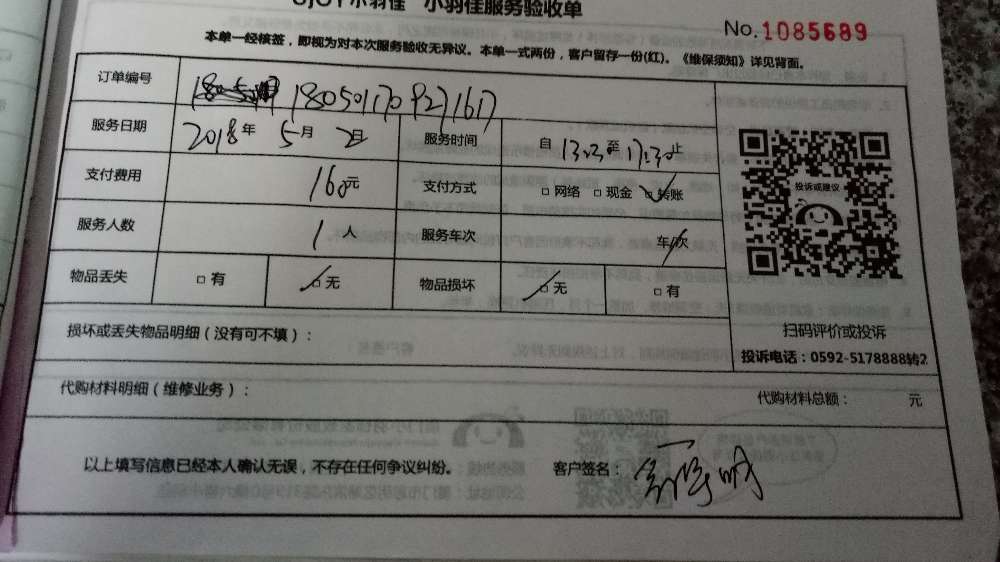 小羽佳 小羽佳服务验收单
No.1085689
本单一经核签，即视为对本次服务验收无异议。本单一式两份，客户留存一份(红)。《维保须知》详见背面。
订单编号 1805011709271617
服务日期 2018年 5月 2日 服务时间 自 13:23 至 17:30 止
支付费用 160元 支付方式 □网络 □现金 □转账
服务人数 1人 服务车次 车/次
物品丢失 □有 □无 物品损坏 □无 □有
投诉或建议
扫码评价或投诉
投诉电话：0592-5178888转2
损坏或丢失物品明细（没有可不填）：
代购材料明细（维修业务）： 代购材料总额： 元
以上填写信息已经本人确认无误，不存在任何争议纠纷。 客户签名：